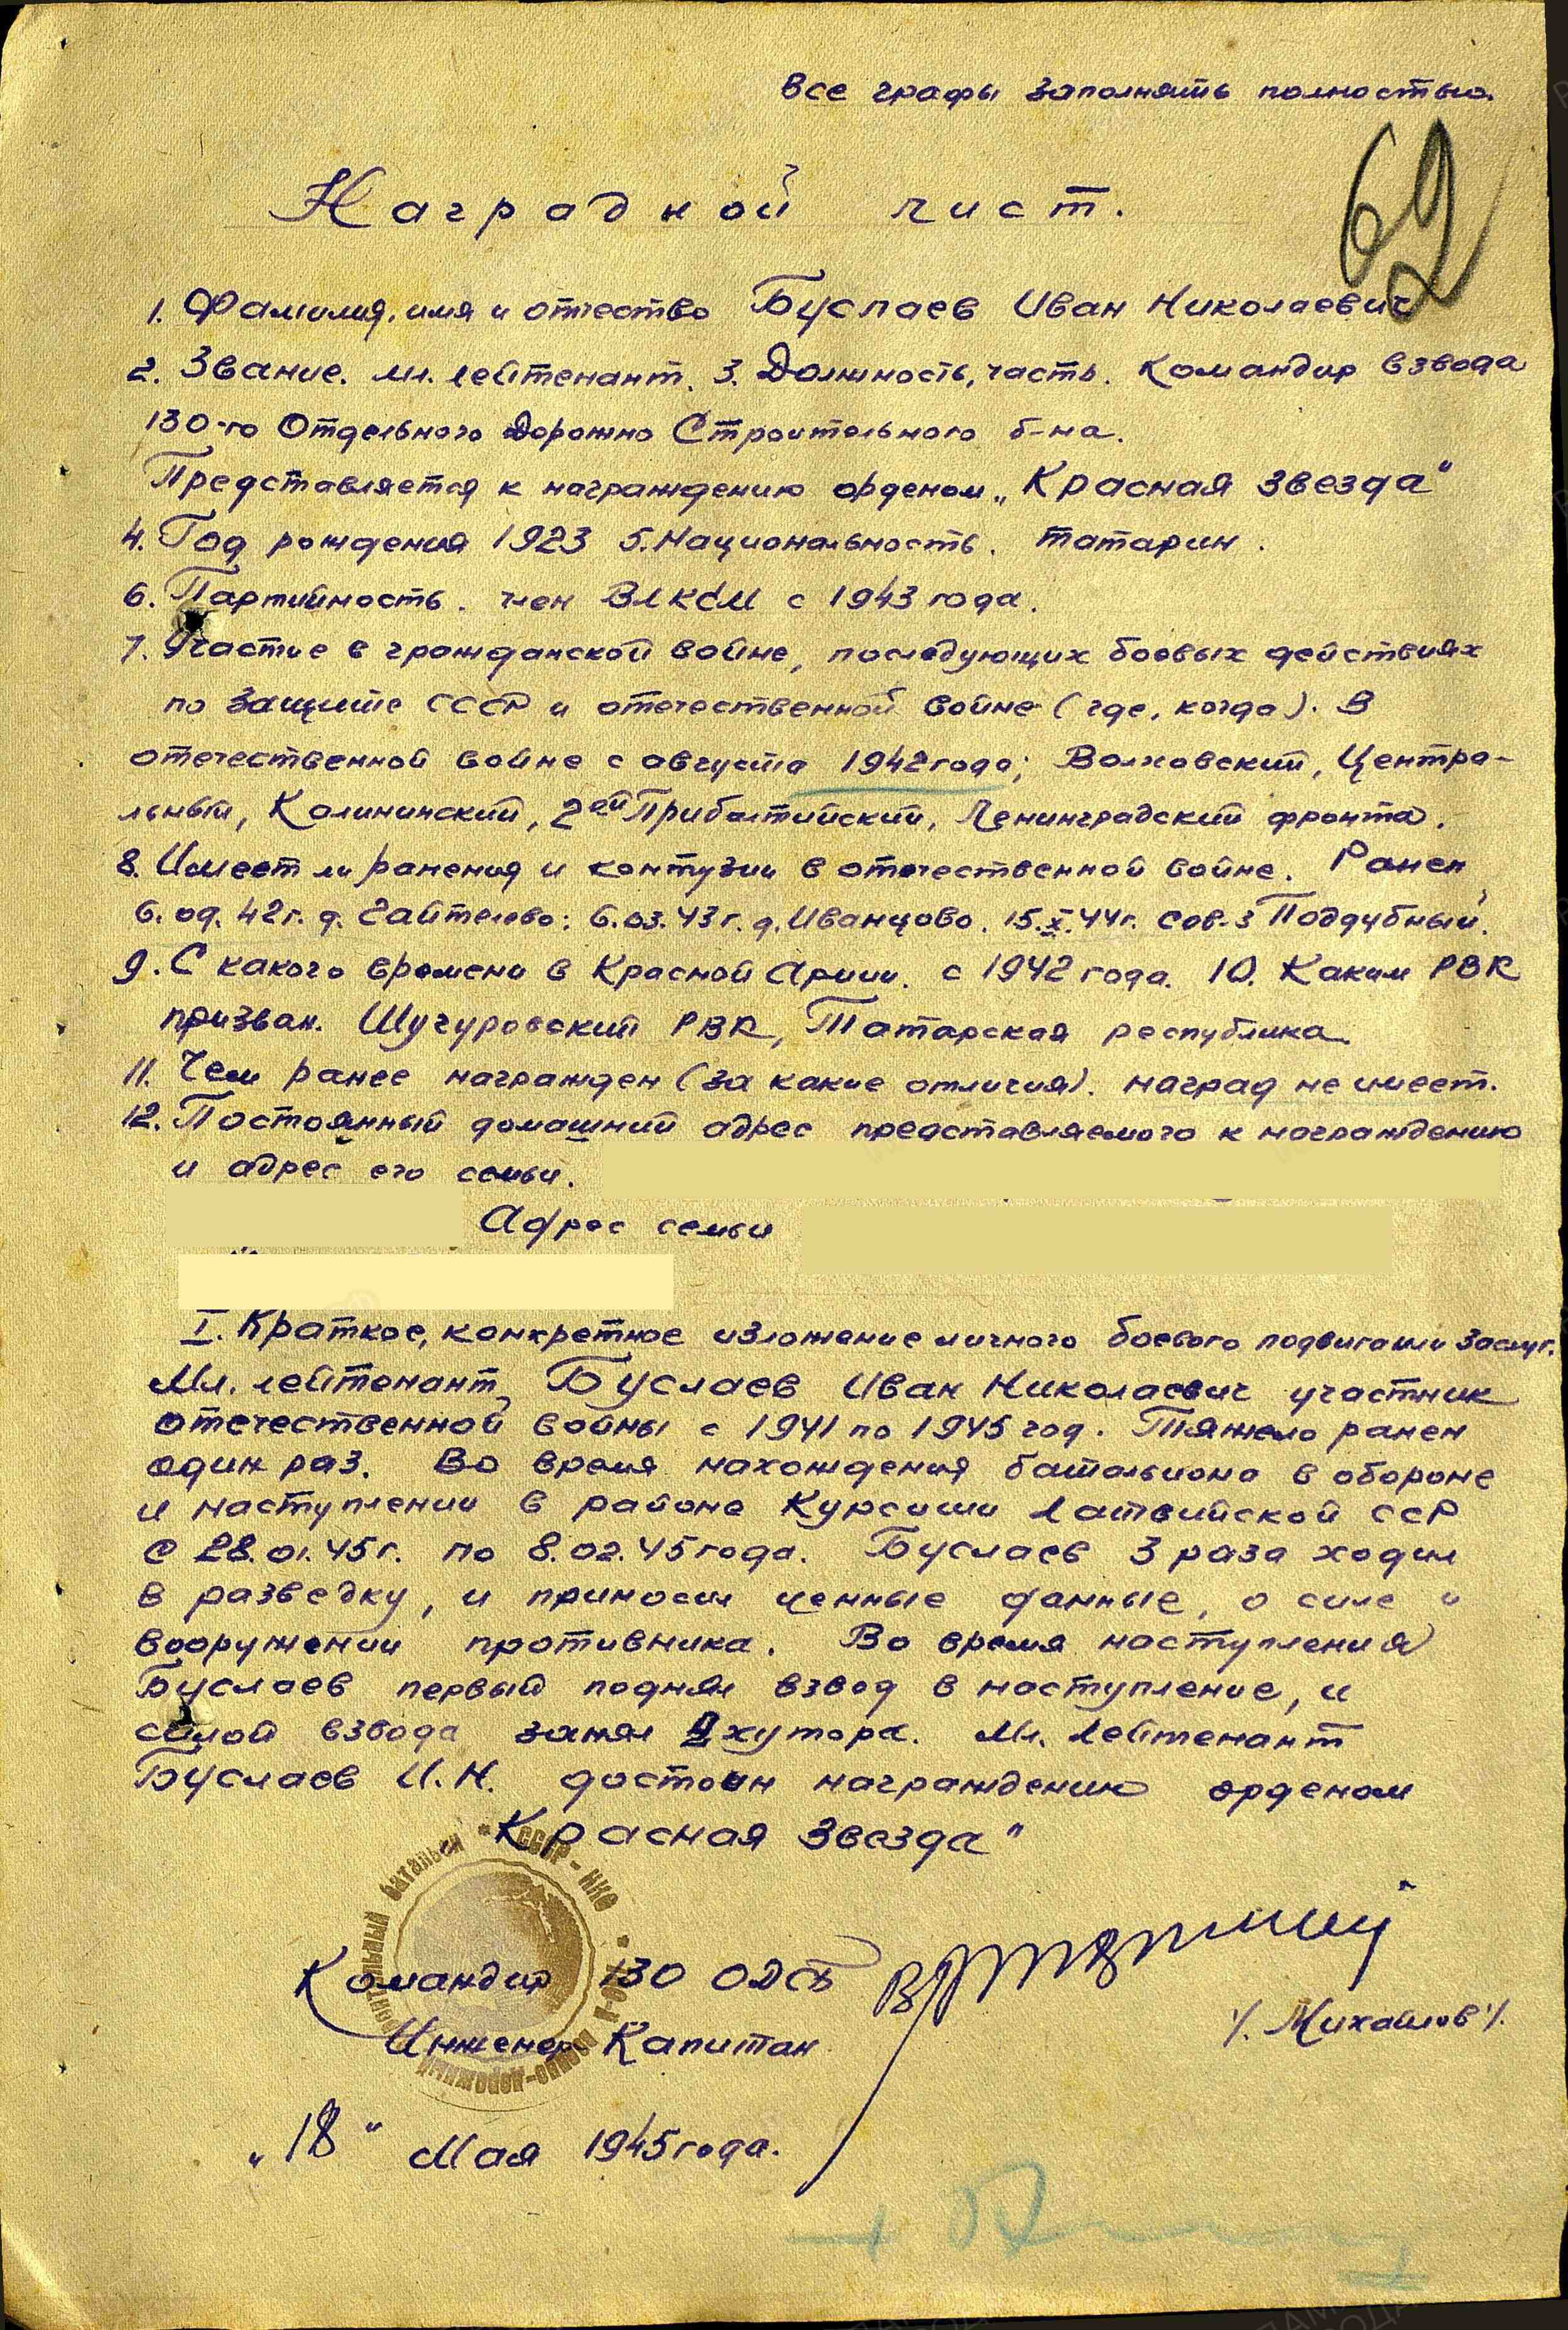 Все графы заполнять полностью.
62
Наградной лист.
1. Фамилия, имя и отчество Буслаев Иван Николаевич
2. Звание. мл. лейтенант. 3. Должность, часть. Командир взвода
130-го Отдельного Дорожно Строительного б-на.
Представляется к награждению орденом „Красная звезда"
4. Год рождения 1923 5. Национальность. татарин.
6. Партийность. член ВЛКСМ с 1943 года.
7. Участие в гражданской войне, последующих боевых действиях
по защите СССР и отечественной войне (где, когда). В
отечественной войне с августа 1942 года; Волховский, Центра-
льный, Калининский, 2ей Прибалтийский, Ленинградский фронта.
8. Имеет ли ранения и контузии в отечественной войне. Ранен
6.09.42г. д. Гайтелево; 6.03.43г. д. Иванцово. 15.X.44г. сов-з Поддубный.
9. С какого времени в Красной Армии. с 1942 года. 10. Каким РВК
призван. Шучуровский РВК, Татарская республика.
11. Чем ранее награжден (за какие отличия). наград не имеет.
12. Постоянный домашний адрес представляемого к награждению
и адрес его семьи.
Адрес семьи
I. Краткое, конкретное изложение личного боевого подвига или заслуг.
Мл. лейтенант Буслаев Иван Николаевич участник
отечественной войны с 1941 по 1945 год. Тяжело ранен
один раз. Во время нахождения батальона в обороне
и наступлении в районе Курсиши Латвийской ССР
с 28.01.45г. по 8.02.45 года. Буслаев 3 раза ходил
в разведку, и приносил ценные данные, о силе и
вооружении противника. Во время наступления
Буслаев первый поднял взвод в наступление, и
силой взвода занял 2 хутора. Мл. лейтенант
Буслаев И.Н. достоин награждению орденом
„Красная Звезда"
Командир 130 ОДСБ
Инженер Капитан /. Михайлов /.
„18" Мая 1945 года.